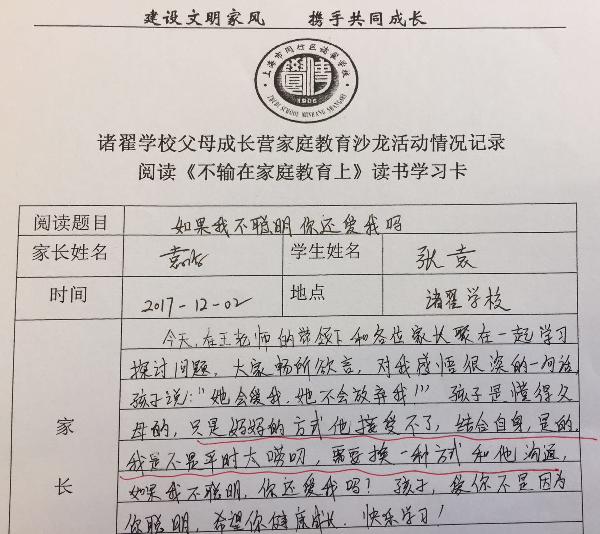 建设文明家风 携手共同成长
上海市闵行区诸翟学校
1906
ZHUDI SCHOOL MINHANG SHANGHAI
诸翟学校父母成长营家庭教育沙龙活动情况记录
阅读《不输在家庭教育上》读书学习卡
阅读题目 如果我不聪明你还爱我吗
家长姓名 袁 学生姓名 张袁
时间 2017-12-02 地点 诸翟学校
今天,在王老师的带领下和各位家长聚在一起学习
探讨问题,大家畅所欲言,对我感悟很深的一句话,
孩子说:"她会爱我,她不会放弃我!"孩子是懂得父
母的,只是妈妈的方式他接受不了,结合自身,是的,
我是不是平时太唠叨,需要换一种方式和他沟通,
如果我不聪明,你还爱我吗?孩子,爱你不是因为
你聪明,希望你健康成长,快乐学习!
家
长